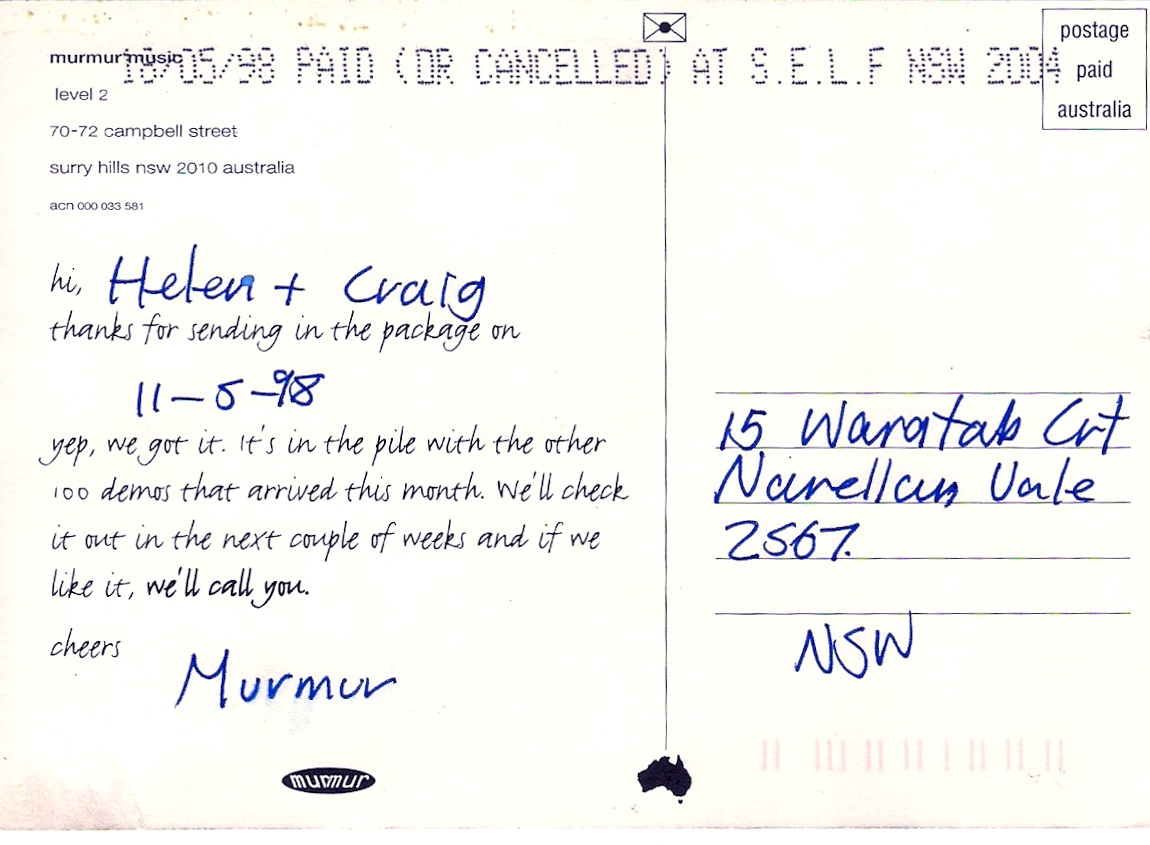 18/05/98 PAID (OR CANCELLED) AT S.E.L.F NSW 2004
postage
paid
australia
murmur music
level 2
70-72 campbell street
surry hills nsw 2010 australia
acn 000 033 581
hi, Helen + Craig
thanks for sending in the package on
11-5-98
yep, we got it. It's in the pile with the other
100 demos that arrived this month. We'll check
it out in the next couple of weeks and if we
like it, we'll call you.
cheers
Murmur
murmur
15 Waratah Crt
Narellan Vale
2567.
NSW